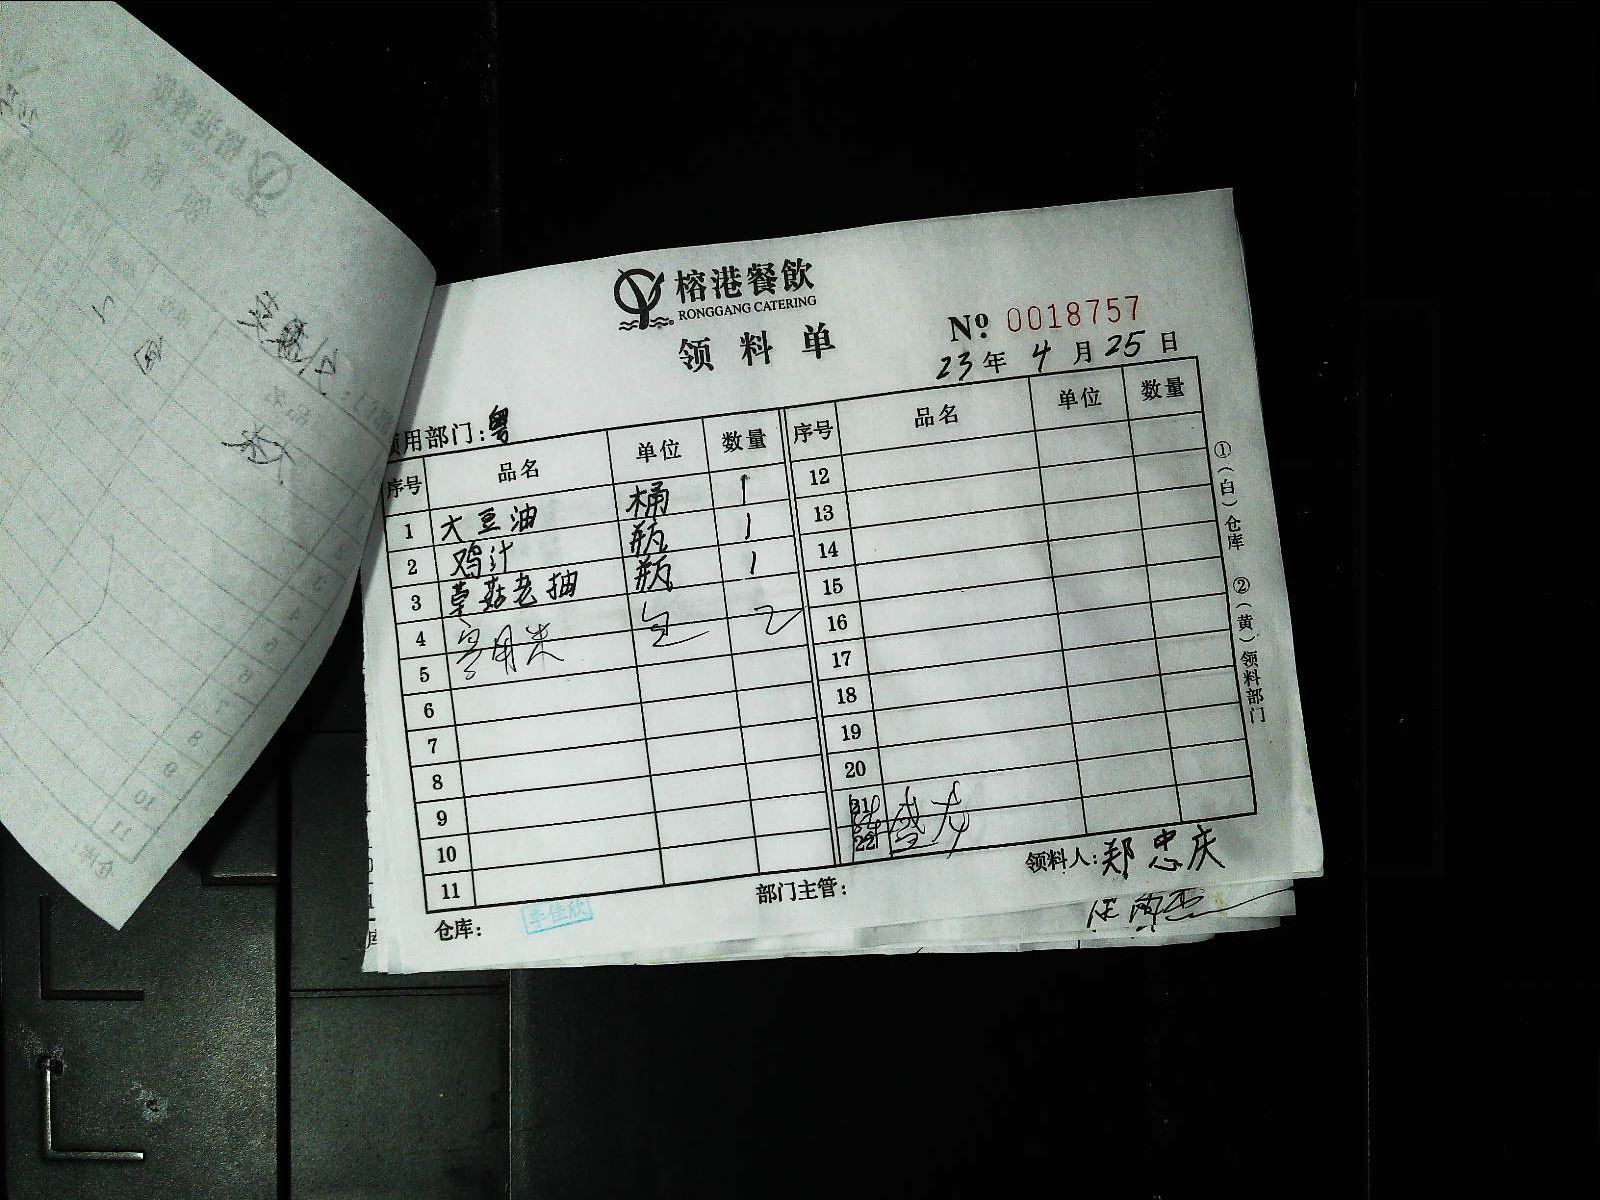 榕港餐飲
RONGGANG CATERING
领料单
№ 0018757
23年4月25日
用部门:粤
序号 品名 单位 数量 序号 品名 单位 数量
1 大豆油 桶 1 12
2 鸡汁 瓶 1 13
3 草菇老抽 瓶 1 14
4 15
5 用米 包 2 16
6 17
7 18
8 19
9 20
10 21
11 22
①(白)仓库 ②(黄)领料部门
仓库: 李佳欣 部门主管: 领料人:郑忠庆